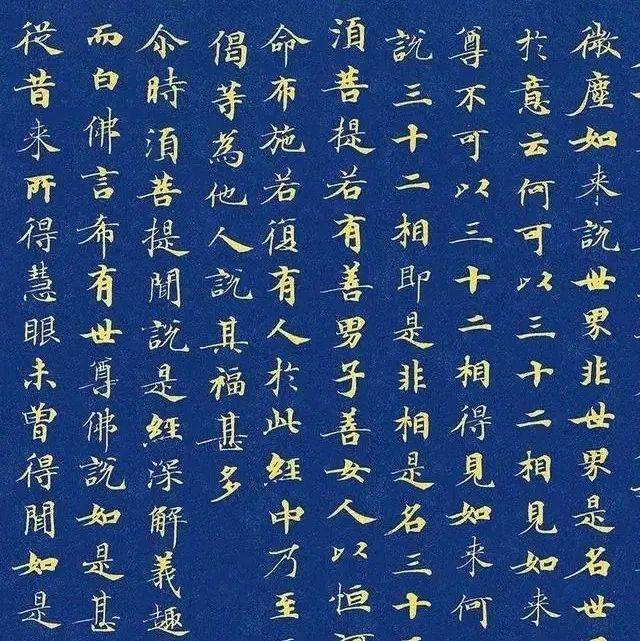 微塵如来說世界非世界是名世
於意云何可以三十二相見如来
尊不可以三十二相得見如来何
說三十二相即是非相是名三十
須菩提若有善男子善女人以恒
命布施若復有人於此經中乃至
偈等為他人說其福甚多
尒時須菩提聞說是經深解義趣
而白佛言希有世尊佛說如是甚
從昔来所得慧眼未曽得聞如是